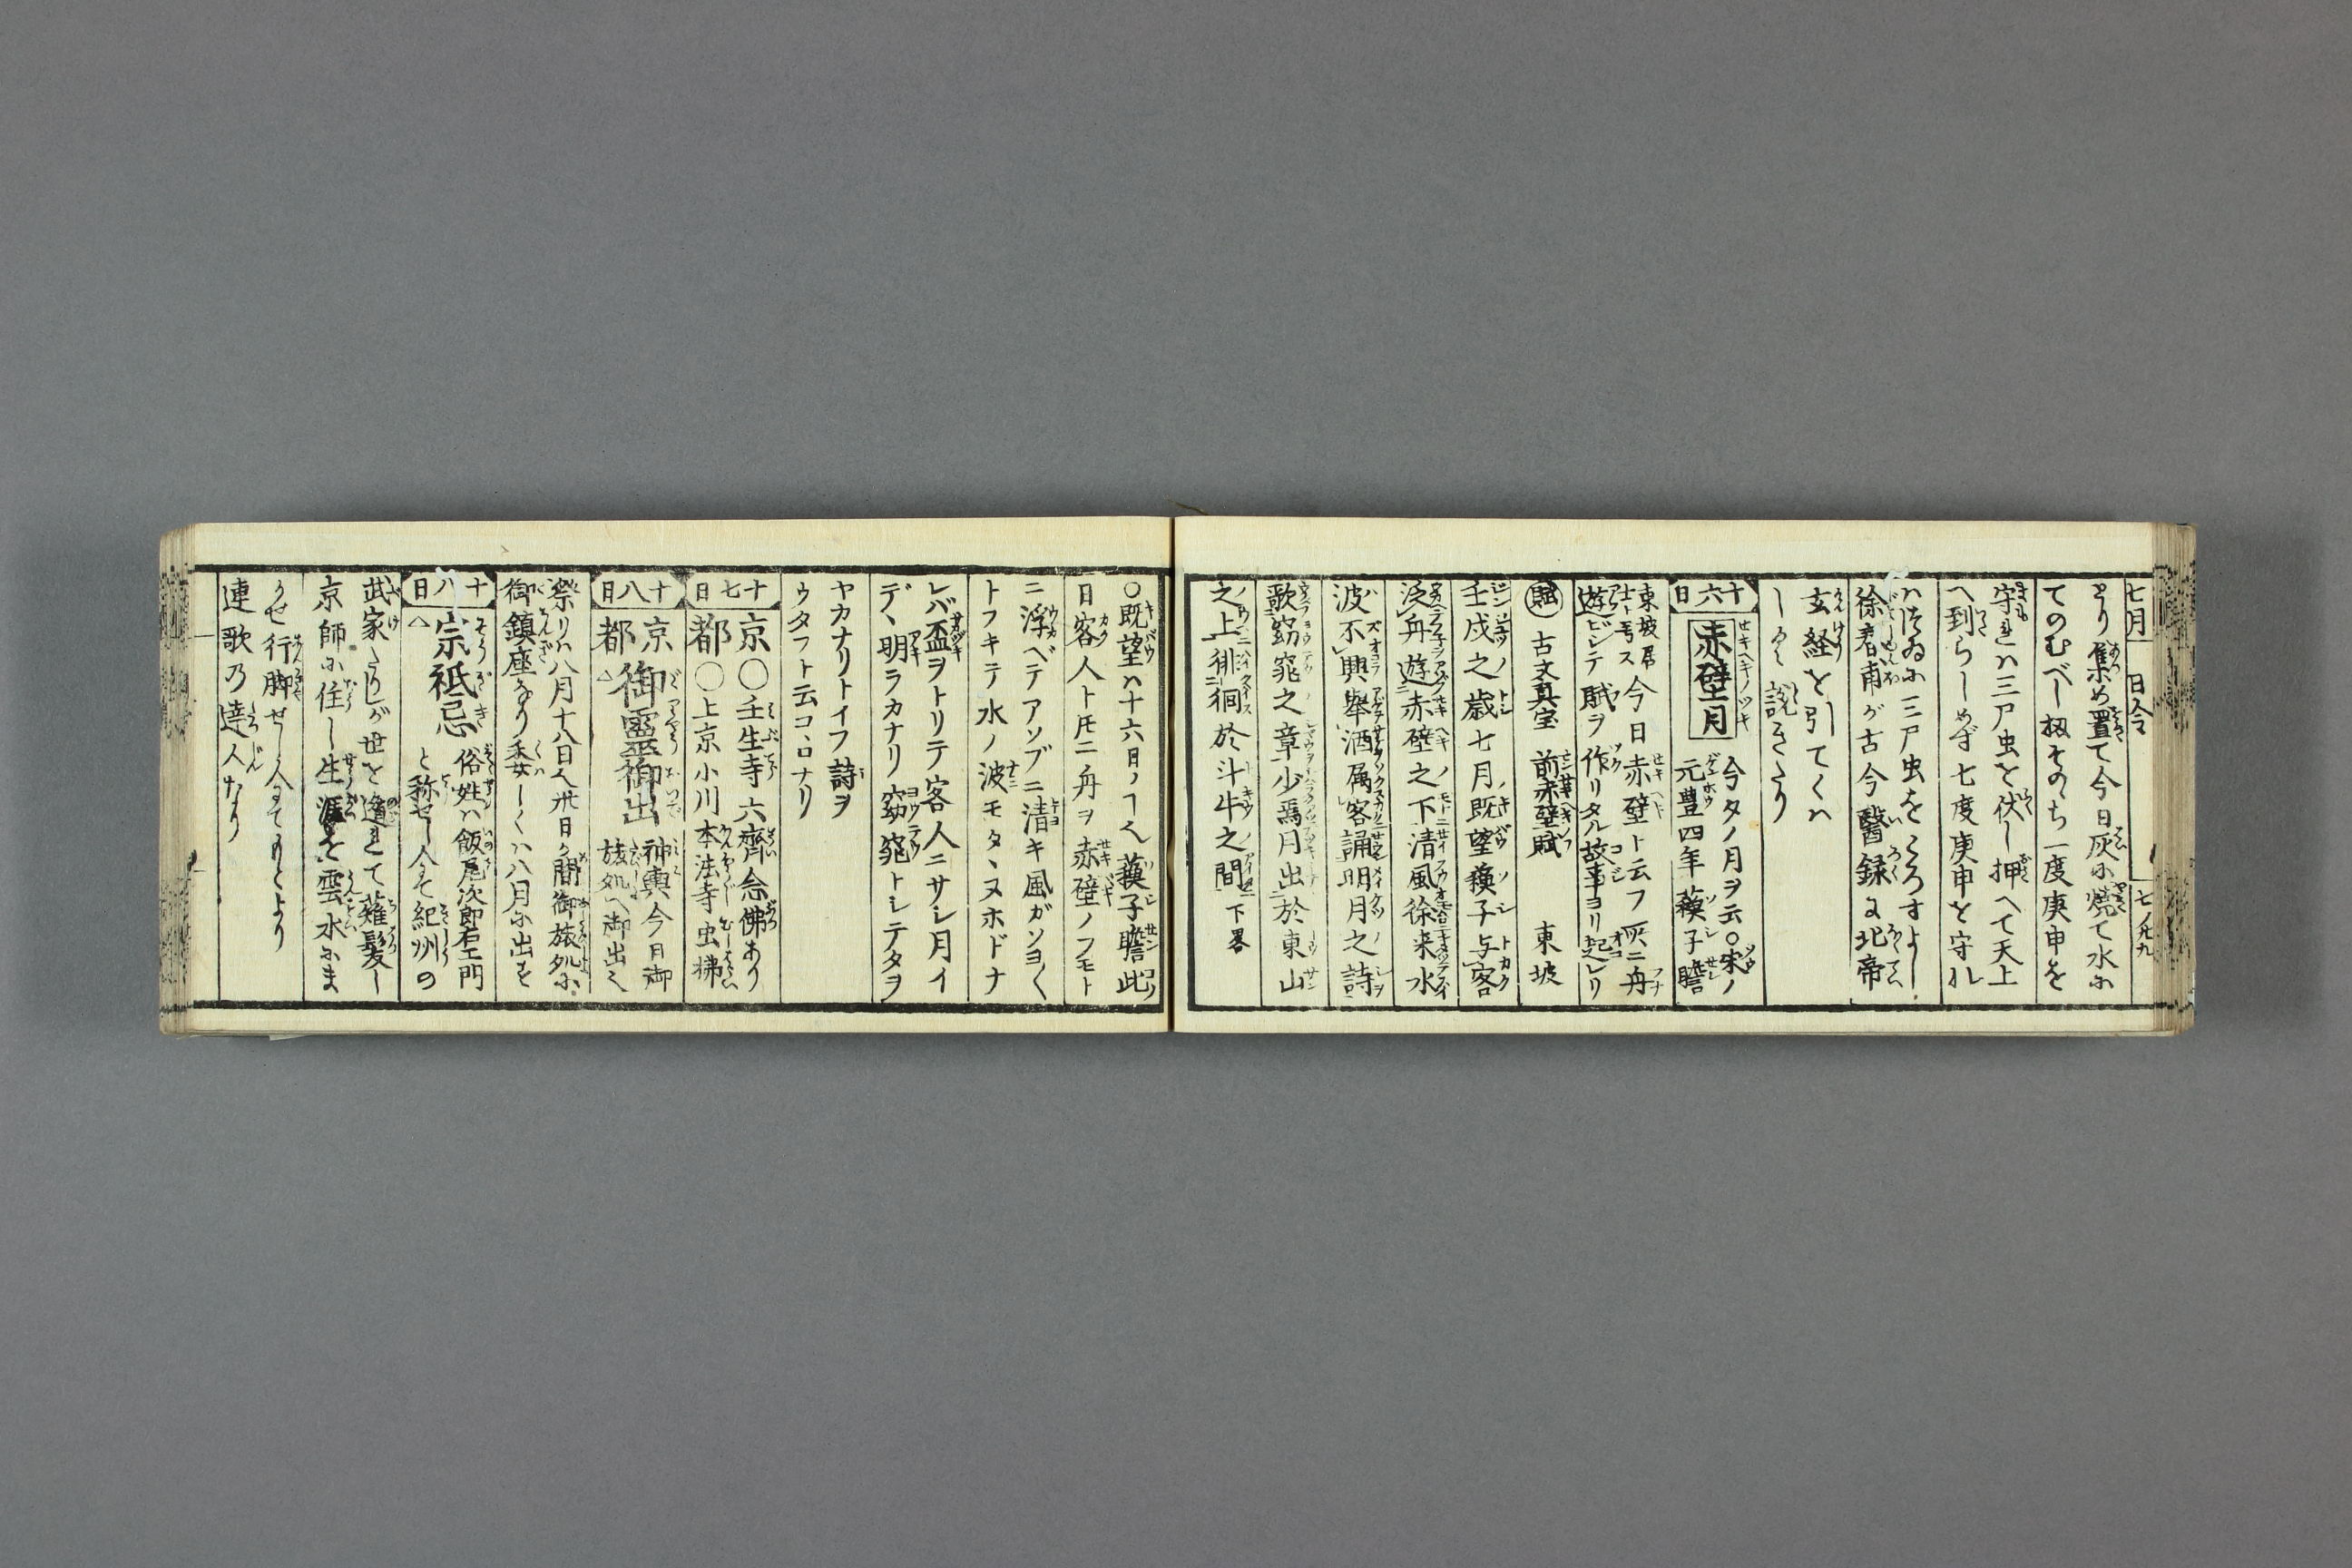 七月 日令 七ノ九
とり集め置て今日灰に焼て水に
てのむべし扨そのち一度庚申を
守れハ三尸虫を伏し押へて天上
へ到らしめず七度庚申を守れ
ハつゐに三尸虫をころすよし
徐春甫が古今醫録に北帝
玄経を引てくハ
しく説きたり
十六日 赤壁月 今夕ノ月ヲ云〇宋ノ
元豊四年蘓子瞻
東坡居
士ト号ス今日赤壁ト云フ所ニ舟
遊ビシテ賦ヲ作リタル故事ヨリ起レリ
賦 古文真宝 前赤壁賦 東坡
壬戌之歳七月既望蘓子与客
泛舟遊赤壁之下清風徐来水
波不興舉酒属客誦明月之詩
歌窈窕之章少焉月出於東山
之上徘徊於斗牛之間下畧
〇既望ハ十六日ノヿ也蘓子瞻此
日客人トモニ舟ヲ赤壁ノフモト
ニ浮ベテアソブニ清キ風ガソヨ〱
トフキテ水ノ波モタヽヌホドナ
レバ盃ヲトリテ客人ニサシ月イ
デヽ明ラカナリ窈窕トシテタヲ
ヤカナリトイフ詩ヲ
ウタフト云コヽロナリ
十七日 京都 〇壬生寺六齊念佛あり
〇上京小川本法寺虫拂
十八日 京都 御霊御出 神輿今日御
旅処へ御出也
祭りハ八月十八日也卅日の間御旅処に
御鎮座なり委しくハ八月に出す
十八日 宗祗忌 俗姓ハ飯尾次郎右エ門
と称せし人にて紀州の
武家たりしが世を遁れて薙髪し
京師に住し生涯を雲水にま
かせ行脚せし人にてもとより
連歌乃達人なり